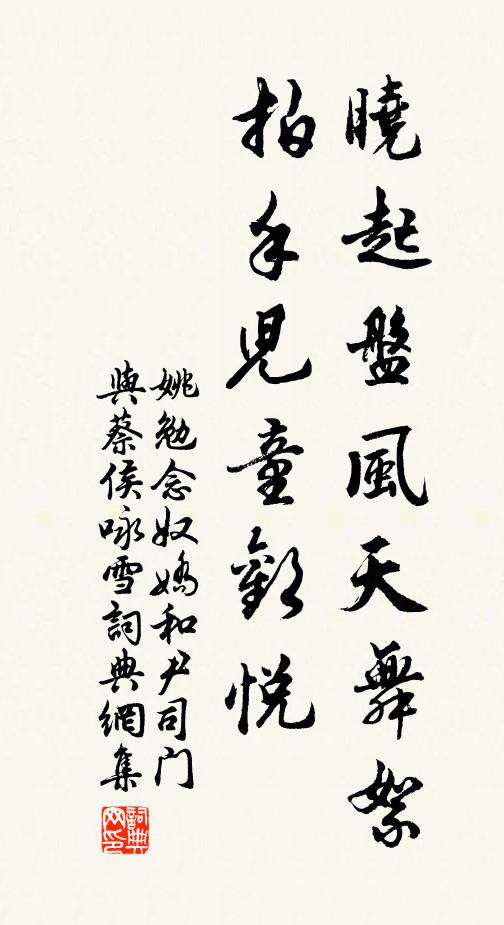 曉起盤風天舞絮
拍手兒童歡悅
姚勉念奴嬌和尹司门
與蔡侯咏雪詞典網集
詞典网印